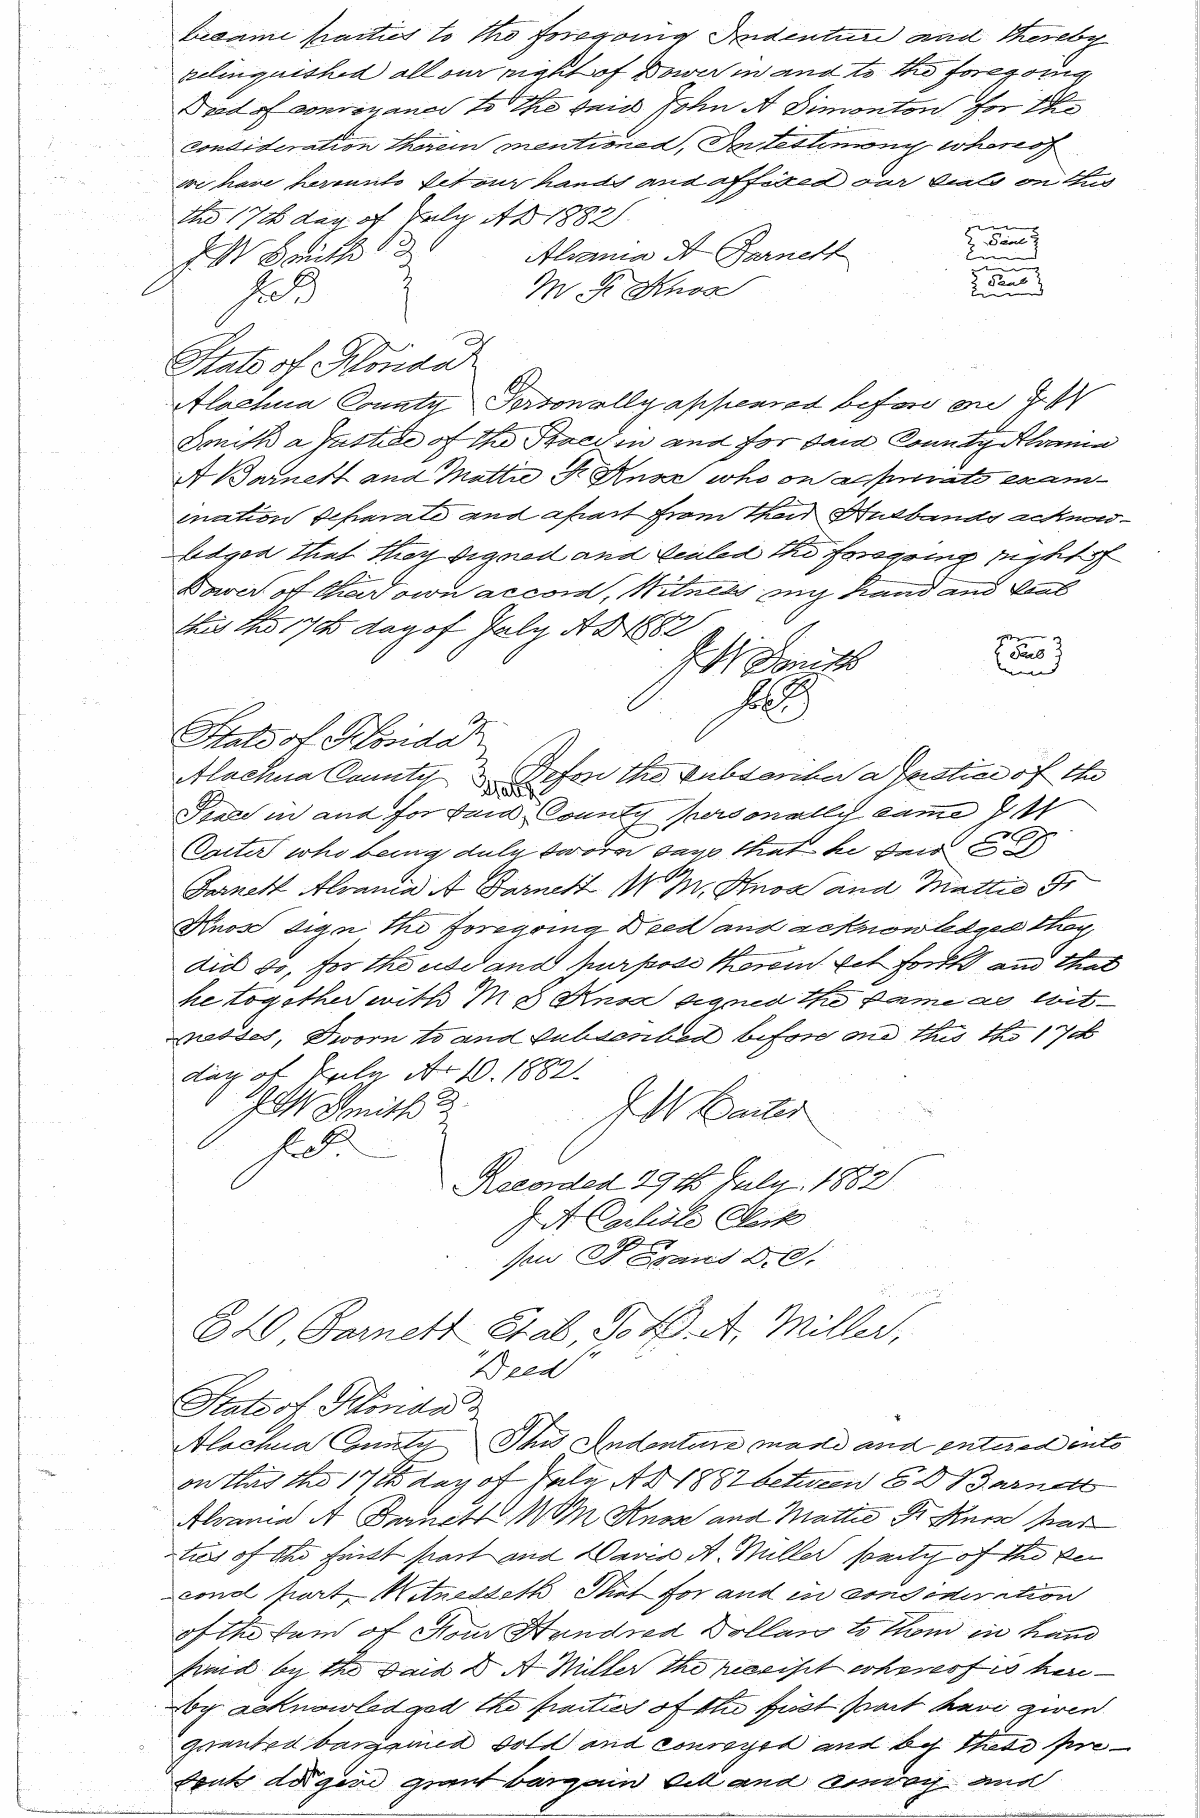 became parties to the foregoing Indenture and thereby
relinquished all our right of Dower in and to the foregoing
Deed of conveyance to the said John A Simonton for the
consideration therein mentioned, In testimony whereof
we have hereunto set our hands and affixed our seals on this
the 17th day of July AD 1882
J W Smith Alvania A Barnett Seal
J.P. M. F. Knox Seal
State of Florida
Alachua County Personally appeared before me J W
Smith a Justice of the Peace in and for said County Alvania
A Barnett and Mattie F. Knox who on a private exam-
ination separate and apart from their Husbands acknow-
ledged that they signed and sealed the foregoing right of
Dower of their own accord, Witness my hand and seal
this the 17th day of July AD 1882
J W Smith Seal
J.P.
State of Florida
Alachua County Before the subscriber a Justice of the
State
Peace in and for said County personally came J W
Carter who being duly sworn says that he saw E D
Barnett Alvania A Barnett W M. Knox and Mattie F.
Knox sign the foregoing Deed and acknowledged they
did so, for the use and purpose therein set forth and that
he together with M S Knox signed the same as wit-
nesses, Sworn to and subscribed before me this the 17th
day of July A. D. 1882.
J W Smith J W Carter
J. P.
Recorded 29th July. 1882
J A Carlisle Clerk
per Evans D. C.
E D, Barnett Et al, To D. A. Miller,
"Deed"
State of Florida
Alachua County This Indenture made and entered into
on this the 17th day of July AD 1882 between E D Barnett
Alvania A Barnett W M Knox and Mattie F. Knox par
ties of the first part and David A. Miller party of the se
cond part, Witnesseth That for and in consideration
of the sum of Four Hundred Dollars to them in hand
paid by the said D A Miller the receipt whereof is here-
by acknowledged the parties of the first part have given
granted bargained sold and conveyed and by these pre-
sents do give grant bargain sell and convey and